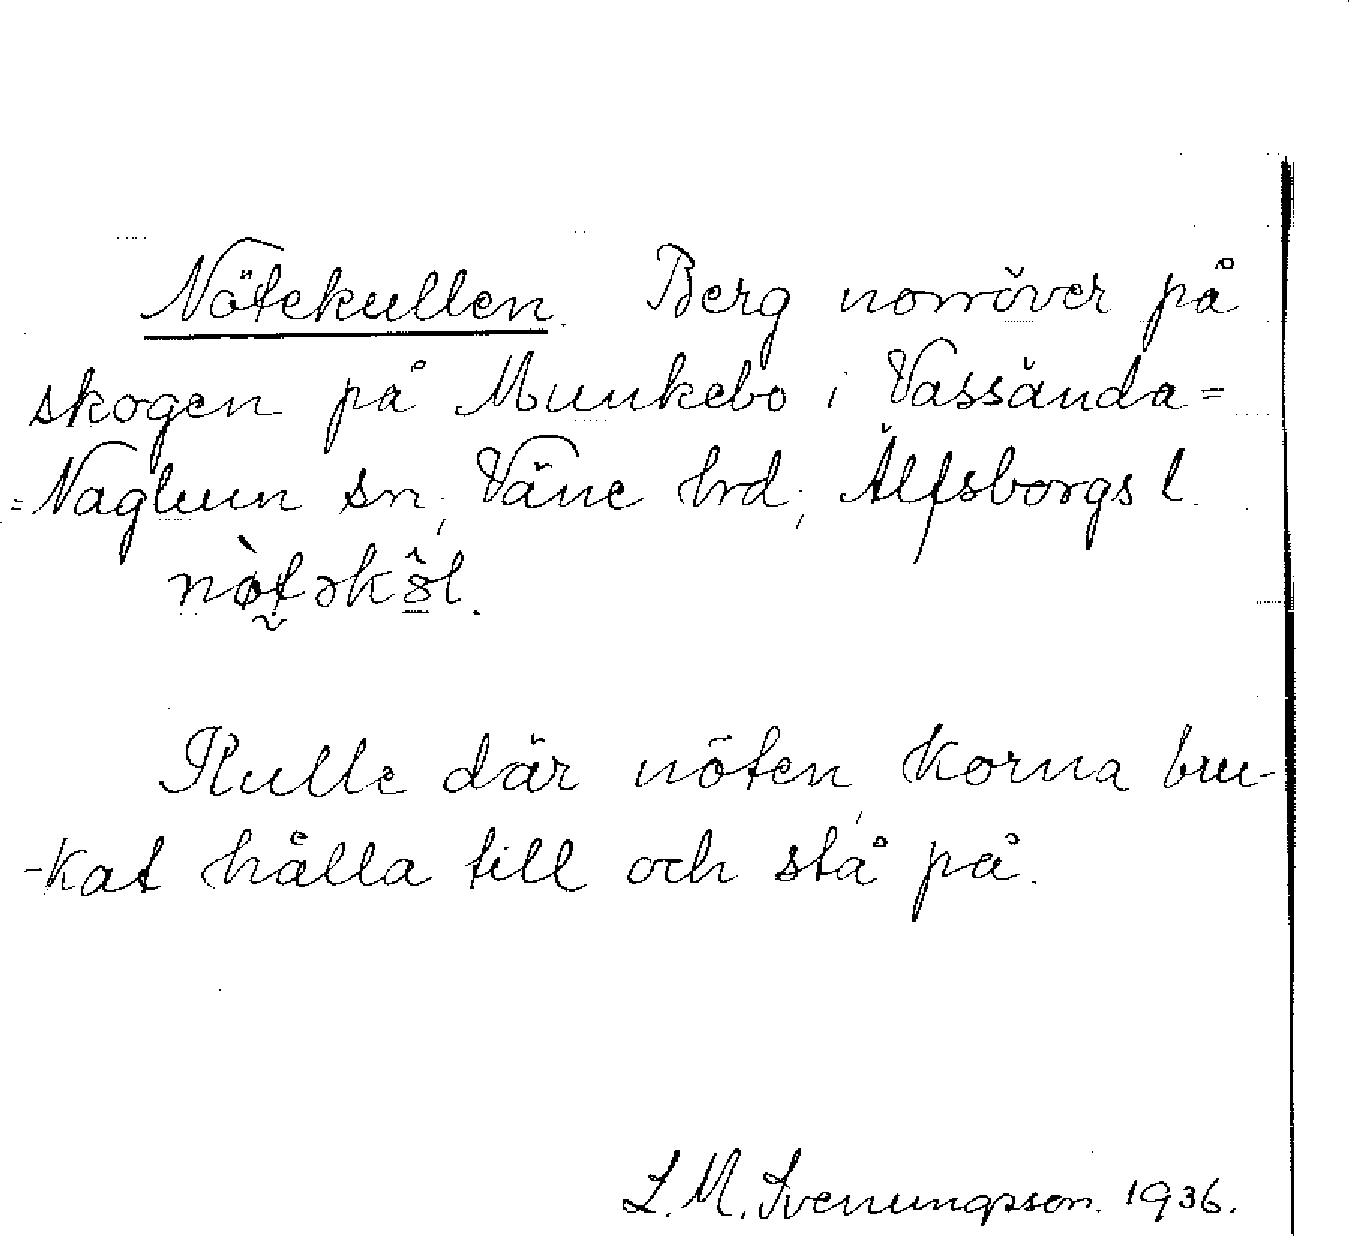 Nötekullen. Berg norröver på
skogen på Munkebo i Vassända=
=Naglum sn, Väne hrd, Älfsborgs l.
nø̀təkål.
Kulle där nöten, korna bru-
-kat hålla till och stå på.
L. M. Svenungsson. 1936.